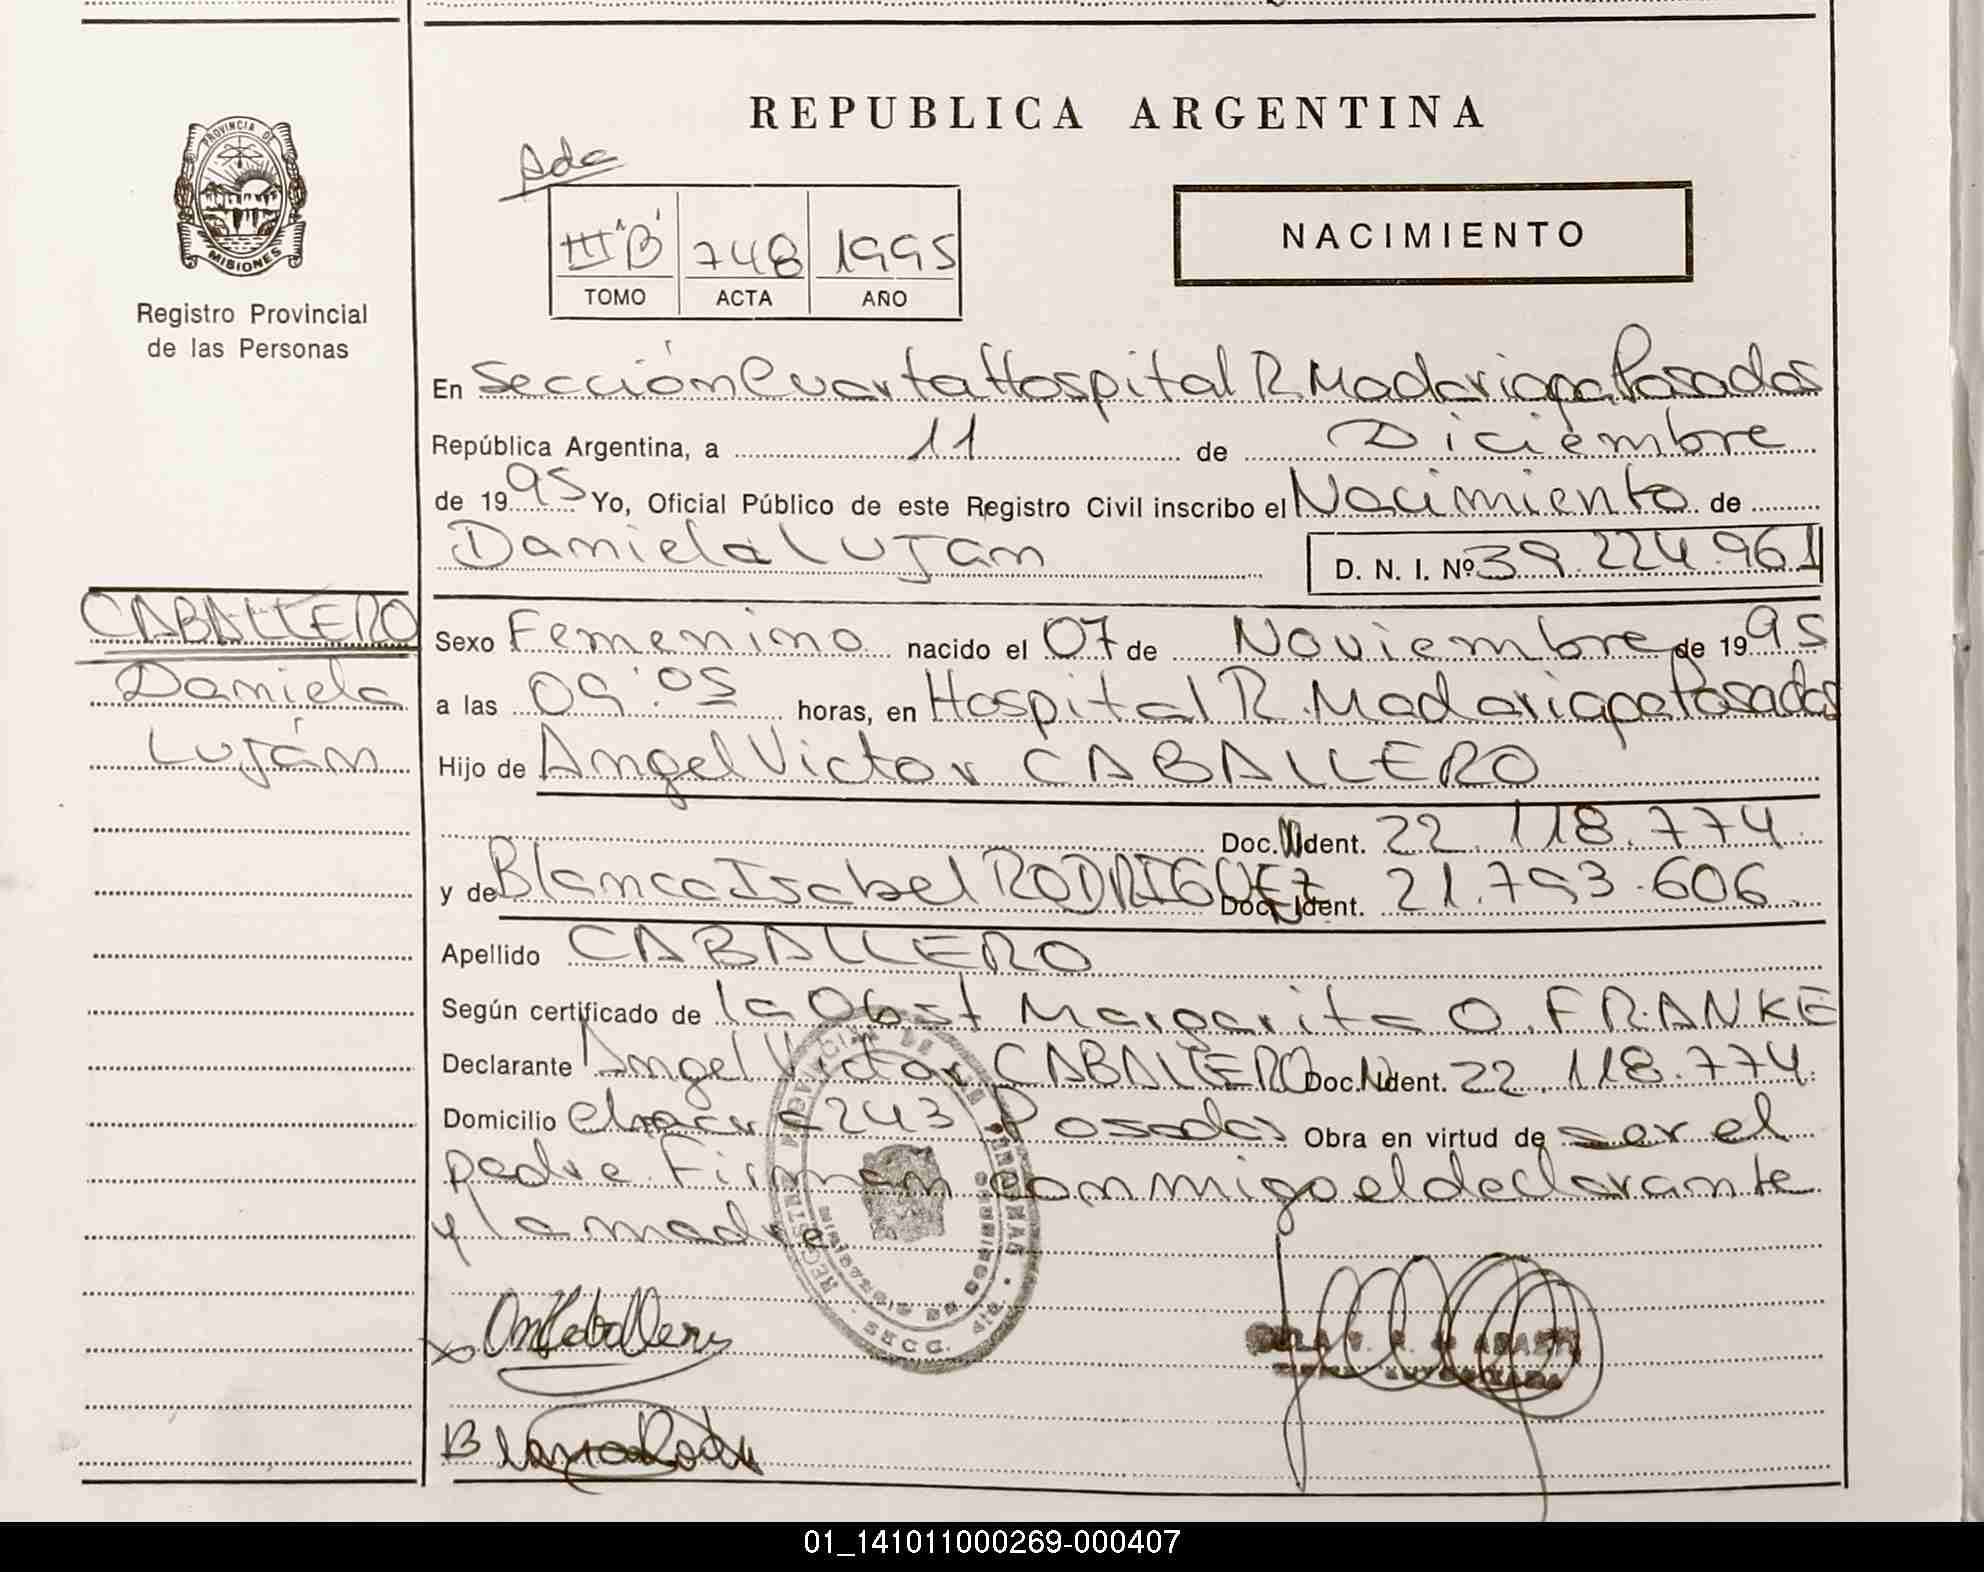 REPUBLICA ARGENTINA
PROVINCIA DE
MISIONES
Registro Provincial
de las Personas
Ada
III "B" 748 1995
TOMO ACTA AÑO
NACIMIENTO
En Sección Cuarta Hospital R. Madariaga Posadas
República Argentina, a 11 de Diciembre
de 1995 Yo, Oficial Público de este Registro Civil inscribo el Nacimiento de
Daniela Lujan D. N. I. Nº 39.224.961
CABALLERO
Daniela
Luján
Sexo Femenino nacido el 07 de Noviembre de 1995
a las 09:05 horas, en Hospital R. Madariaga Posadas
Hijo de Angel Victor CABALLERO
Doc. Ident. 22.118.774
y de Blanca Isabel RODRIGUEZ Doc. Ident. 21.793.606
Apellido CABALLERO
Según certificado de la Obst Margarita O. FRANKE
Declarante Angel Victor CABALLERO Doc. Ident. 22.118.774
Domicilio 243 Posadas Obra en virtud de ser el
padre. Firman conmigo el declarante
y la madre
REGISTRO PROVINCIAL DE LAS PERSONAS
SECC. 4ta.
MISIONES
01_141011000269-000407